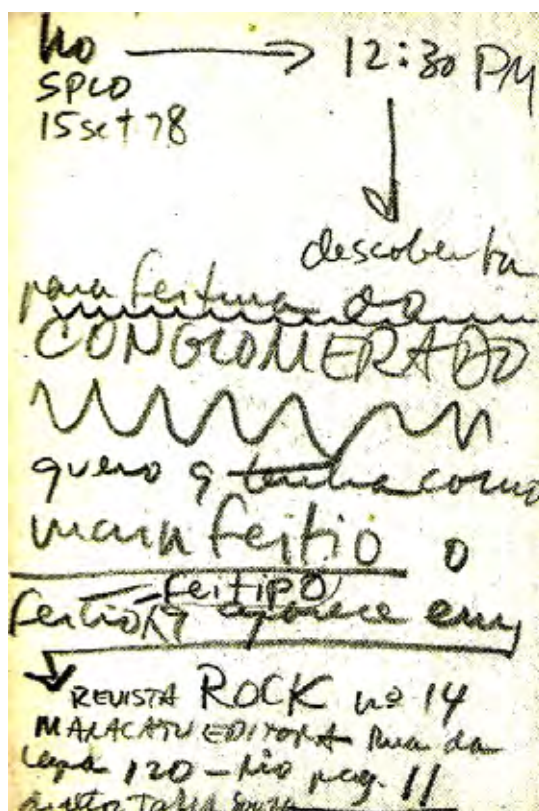 ho → 12:30 PM
SPLO
15 set 78
descoberta
para feitura do
CONGLOMERADO
quero q tenha como
main feitio o
feitipo
feitio q aparece em
REVISTA ROCK nº 14
MARACATU EDITORA Rua da
Lapa 120 - Rio pag. 11